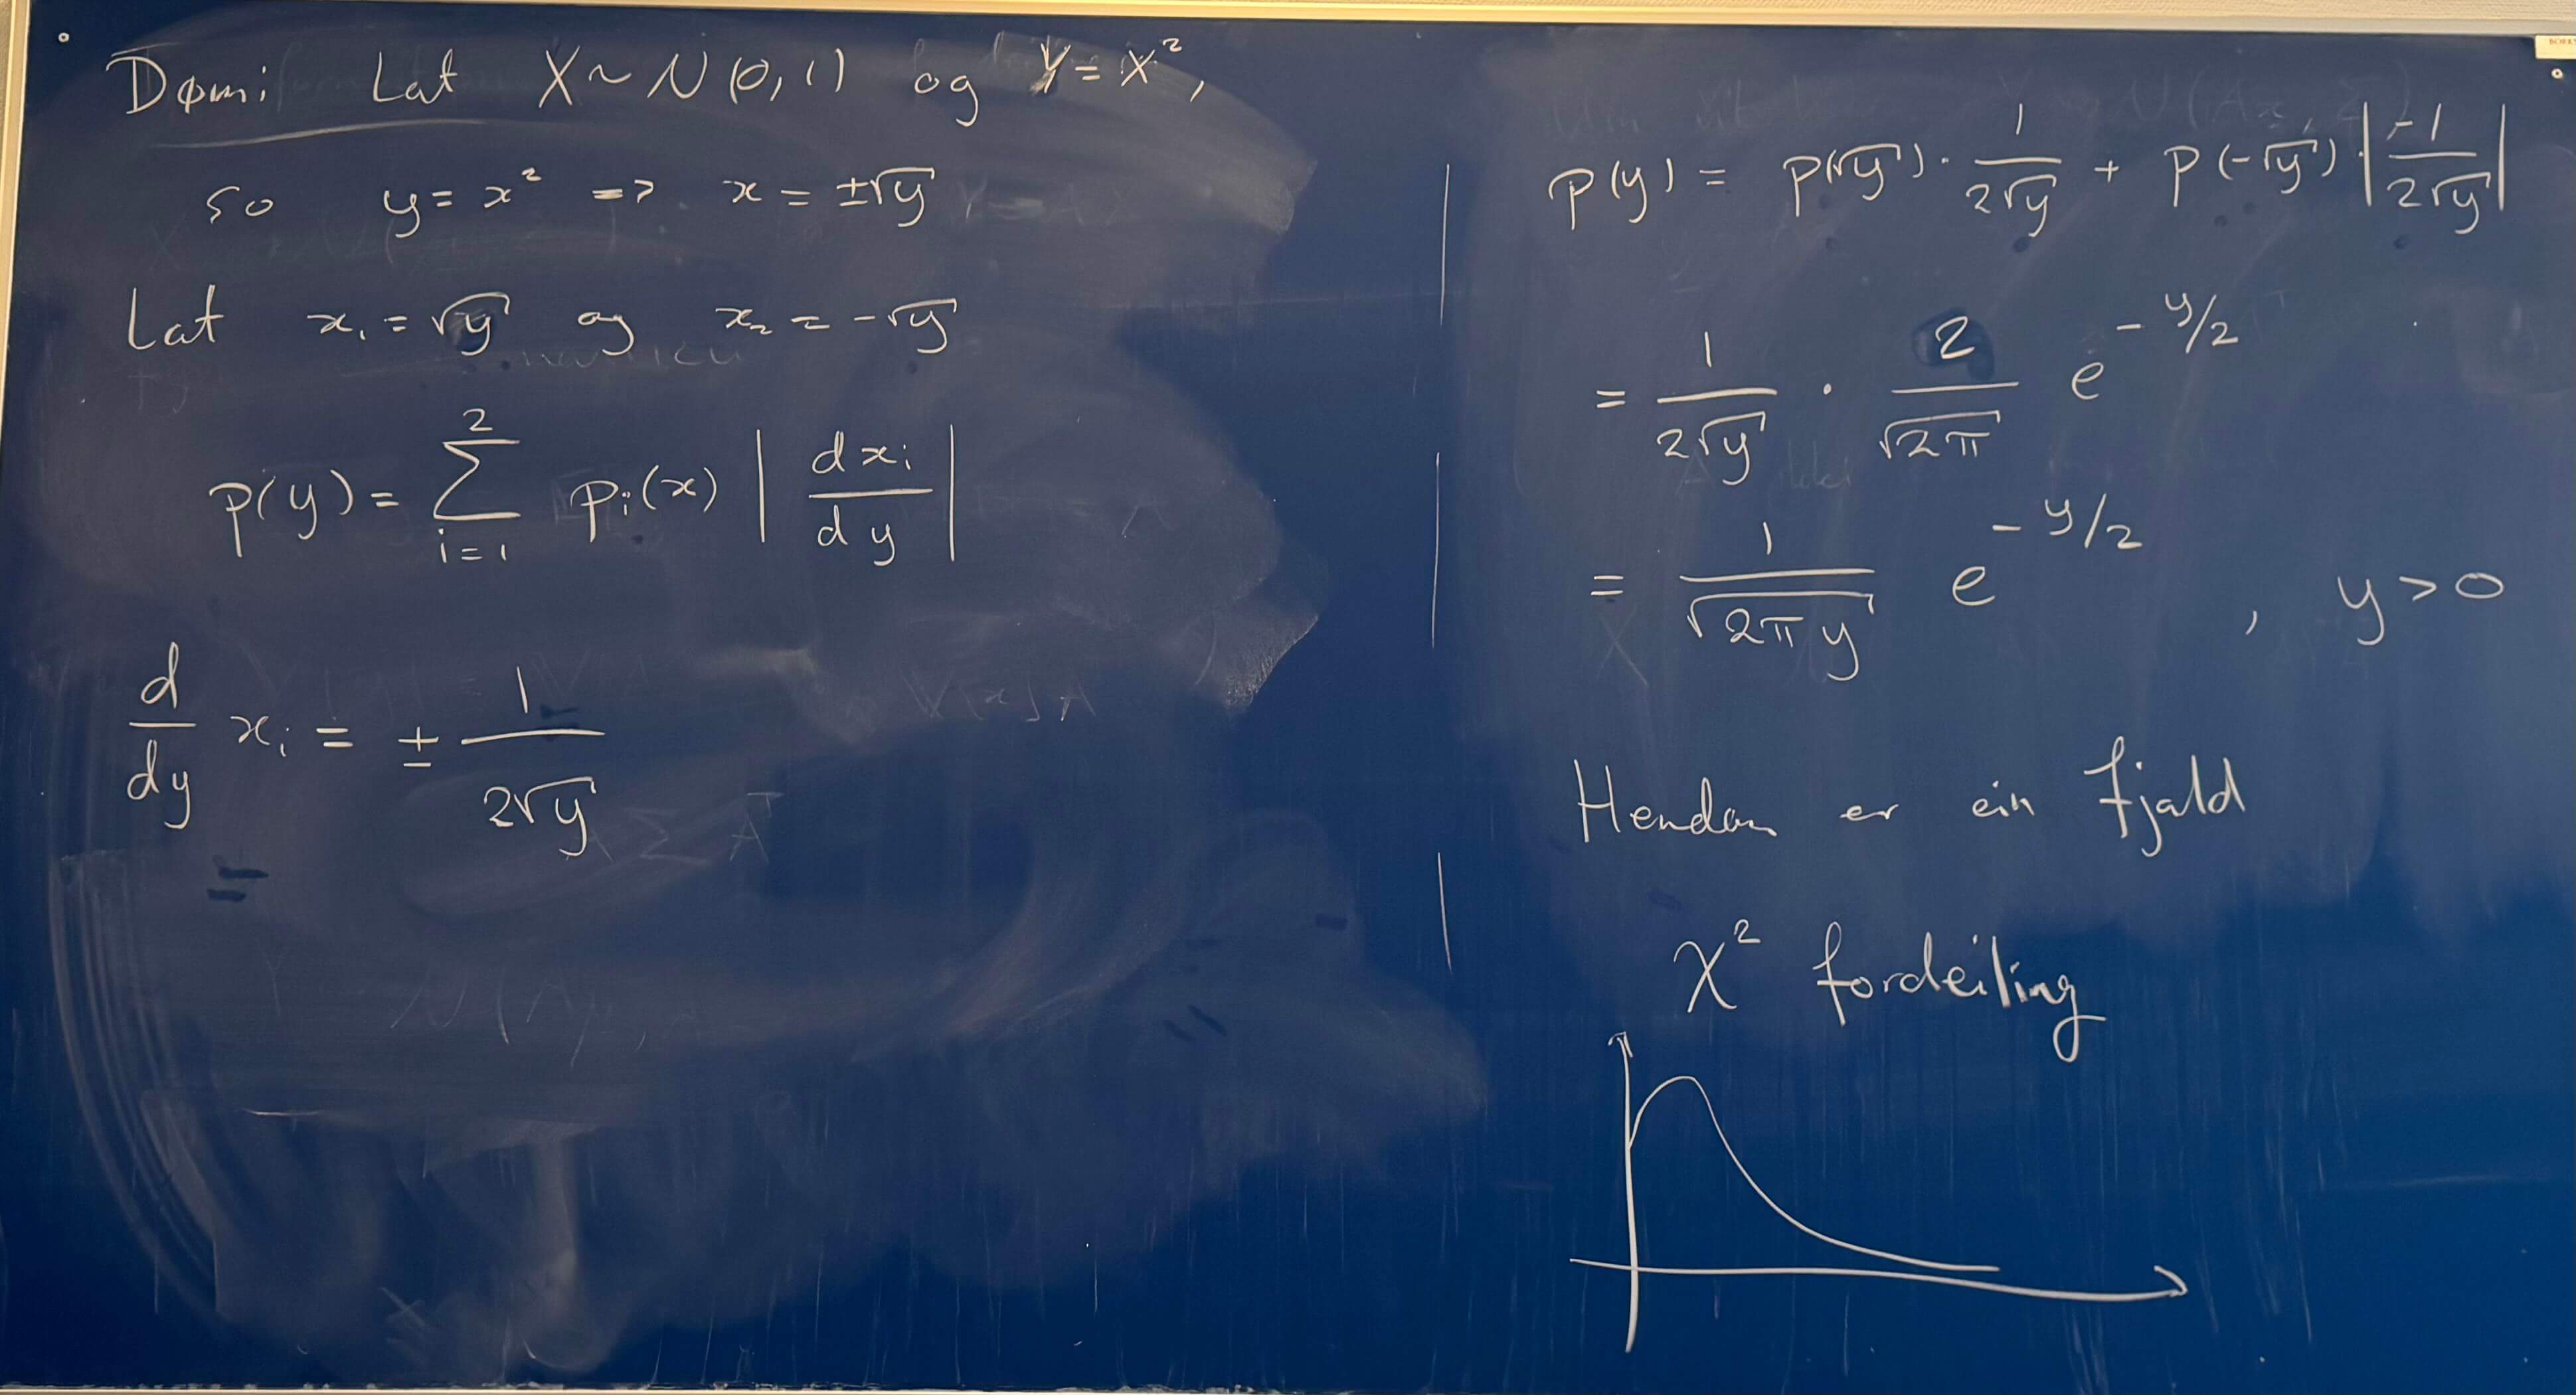 Dømi Lat X ~ N(0,1) og Y = X²,
so y = x² => x = ±√y
Lat x₁ = √y og x₂ = -√y
p(y) = ∑_{i=1}^{2} pᵢ(x) | dxᵢ / dy |
d/dy xᵢ = ± 1/(2√y)
p(y) = p(√y) · 1/(2√y) + p(-√y) · | -1/(2√y) |
= 1/(2√y) · 2/√(2π) e^{-y/2}
= 1/√(2πy) e^{-y/2} , y > 0
Hendan er ein fjald
χ² fordeiling